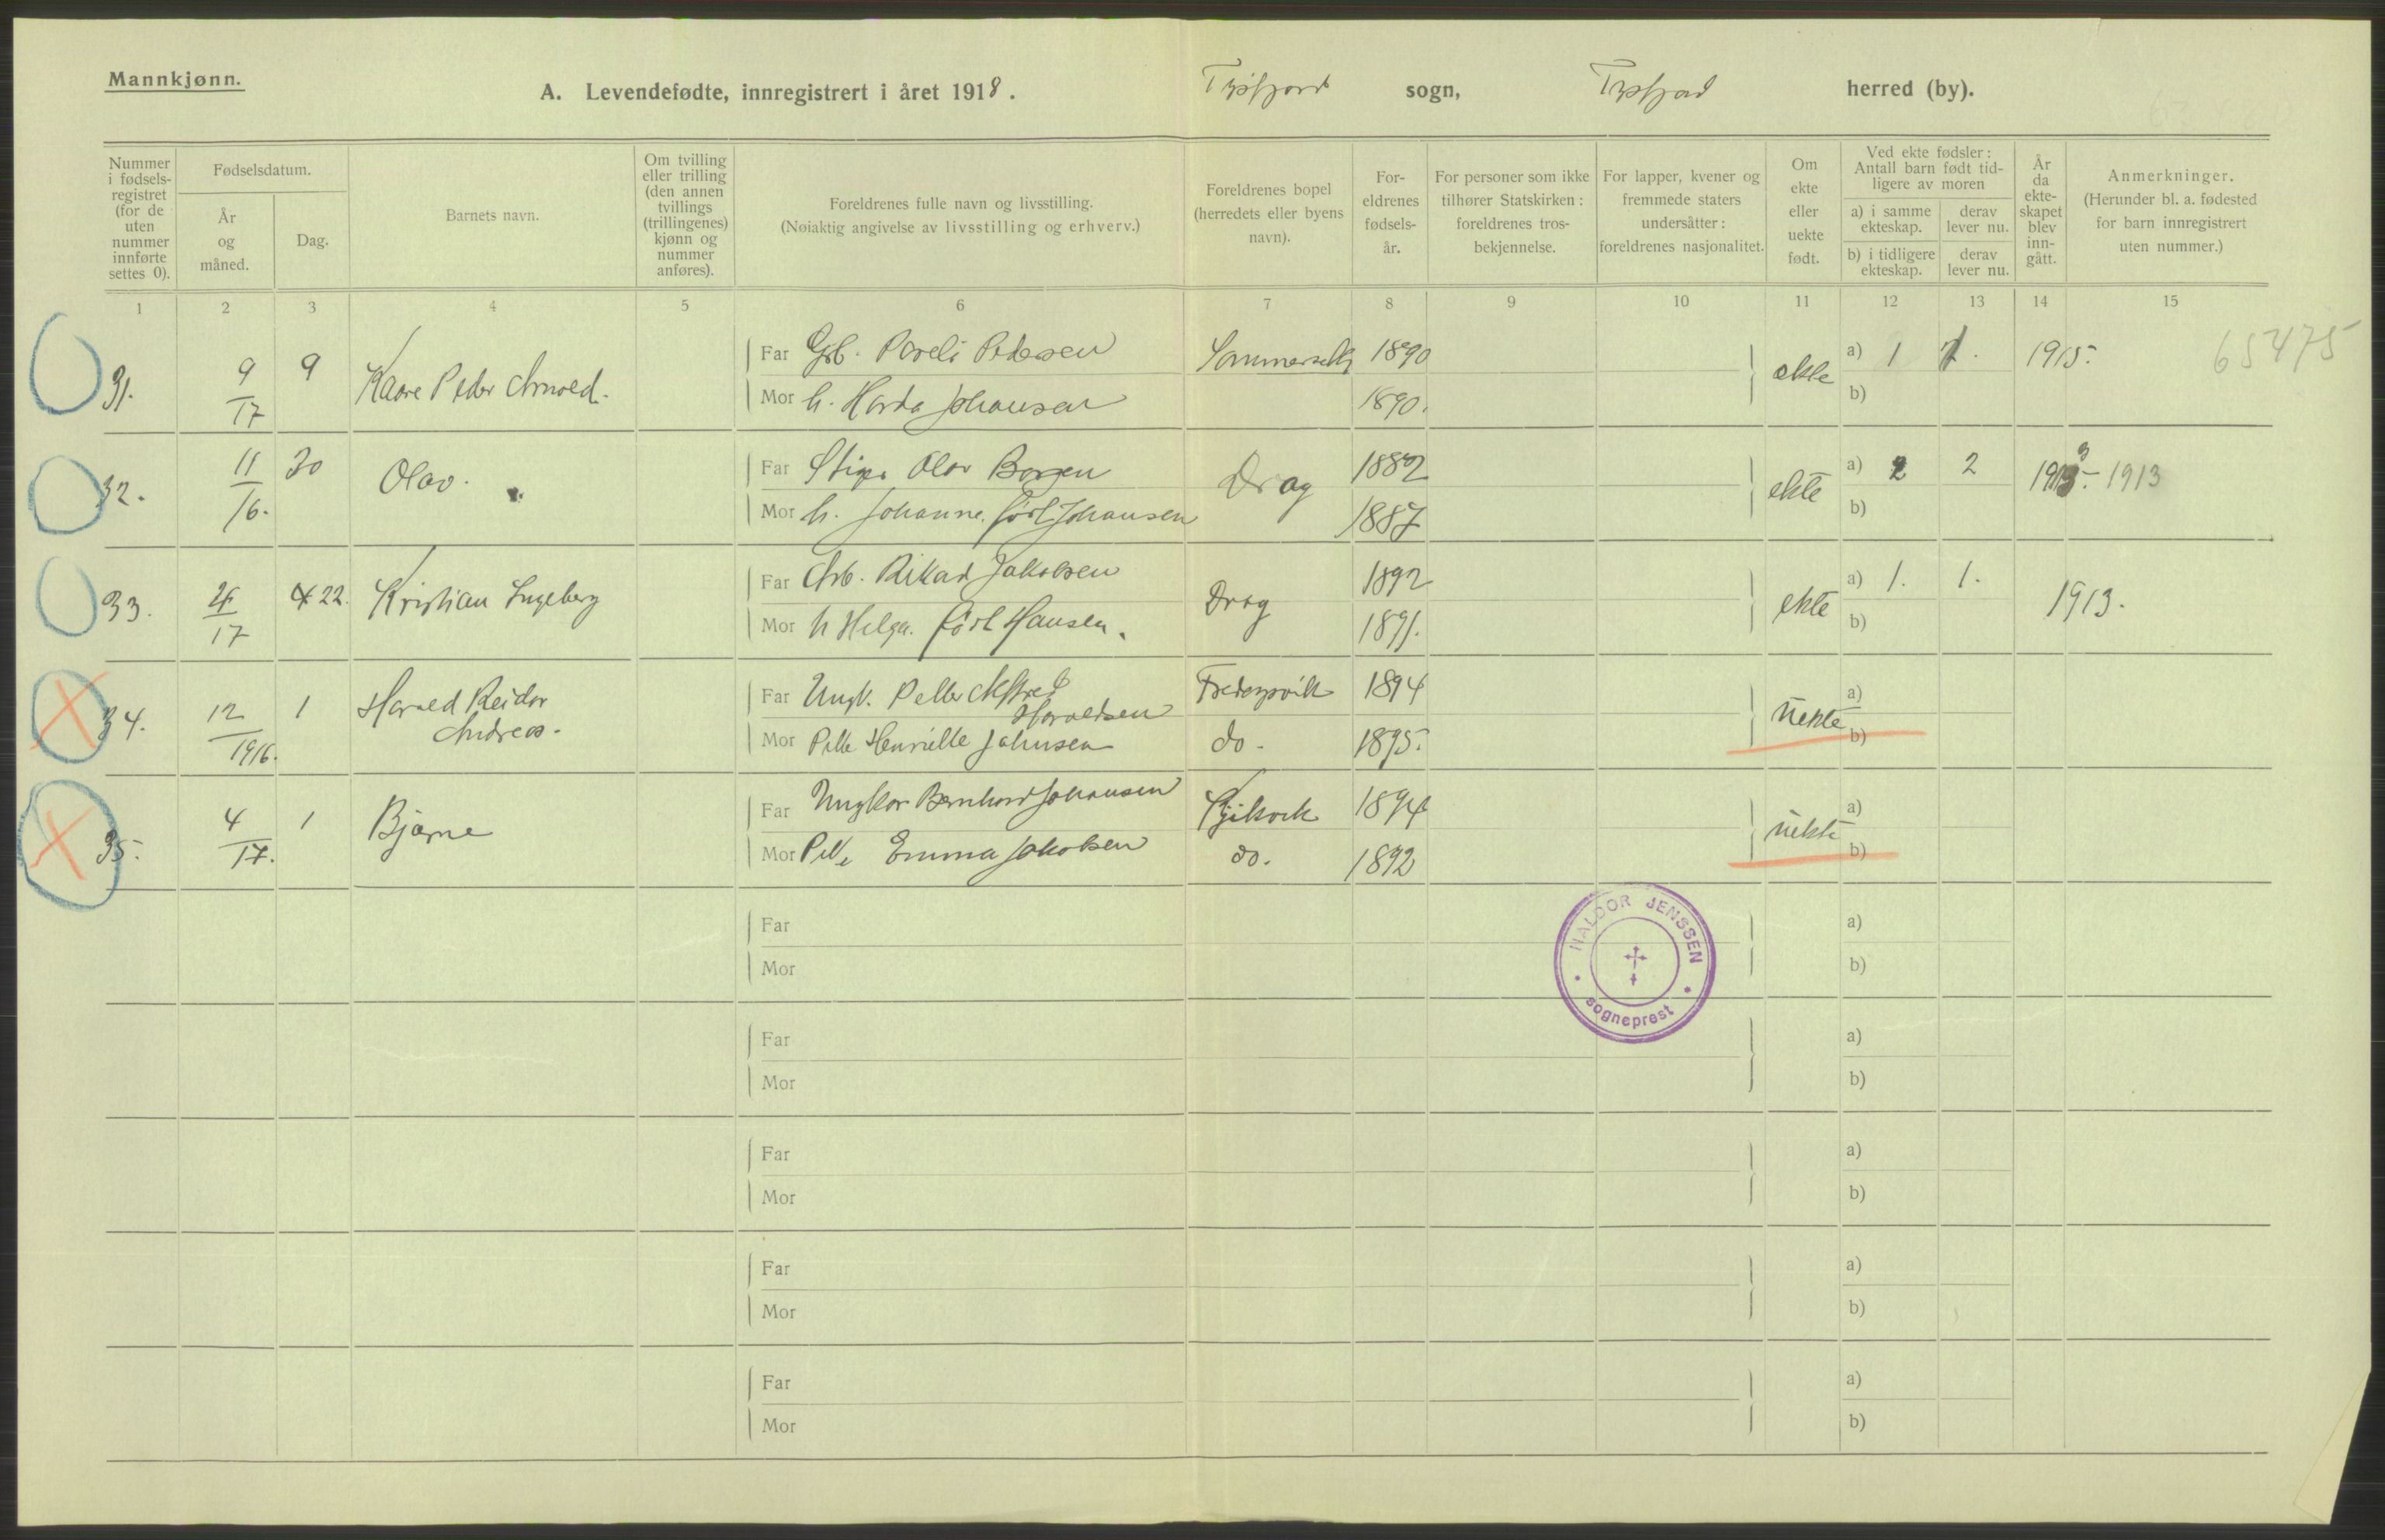 Mannkjønn.
A. Levendefødte, innregistrert i året 1918.
Tysfjord sogn, Tysfjord herred (by).
Nummer i fødsels-registret (for de uten nummer innførte settes 0).
Fødselsdatum.
År og måned.
Dag.
Barnets navn.
Om tvilling eller trilling (den annen tvillings (trillingenes) kjønn og nummer anføres).
Foreldrenes fulle navn og livsstilling.
(Nøiaktig angivelse av livsstilling og erhverv.)
Foreldrenes bopel (herredets eller byens navn).
For-eldrenes fødsels-år.
For personer som ikke tilhører Statskirken: foreldrenes tros-bekjennelse.
For lapper, kvener og fremmede staters undersåtter: foreldrenes nasjonalitet.
Om ekte eller uekte født.
Ved ekte fødsler: Antall barn født tid-ligere av moren
a) i samme ekteskap.
derav lever nu.
b) i tidligere ekteskap.
derav lever nu.
År da ekte-skapet blev inn-gått.
Anmerkninger.
(Herunder bl. a. fødested for barn innregistrert uten nummer.)
1 2 3 4 5 6 7 8 9 10 11 12 13 14 15
65475
31. 9/17 9 Kaare Peder Arnold.
Far Gb. Pareli Pedersen 1890
Mor h. Harda Johansen 1890.
ekte a) 1 1. 1915.
b)
32. 11/16. 30 Olav.
Far Olav Borgen Drag 1882
Mor h. Johanne født Johansen 1887
ekte a) 2 2 1913
b)
33. 17 22. Kristian Ingeberg
Far Arb. Rikard Jakobsen Drag 1892
Mor h Helga født Hansen. 1891.
ekte a) 1. 1. 1913.
b)
34. 12/1916. 1 Harald Reidar Andreas.
Far Ungk. Peder Alfred Haraldsen 1894
Mor Pike Henriette Johnsen do. 1895.
uekte a)
b)
35. 4/17. 1 Bjarne
Far Ungkar Bernhard Johansen 1894
Mor Pike Emma Jakobsen do. 1892
uekte a)
b)
Far a)
Mor b)
HALDOR JENSSEN
sogneprest
Far a)
Mor b)
Far a)
Mor b)
Far a)
Mor b)
Far a)
Mor b)